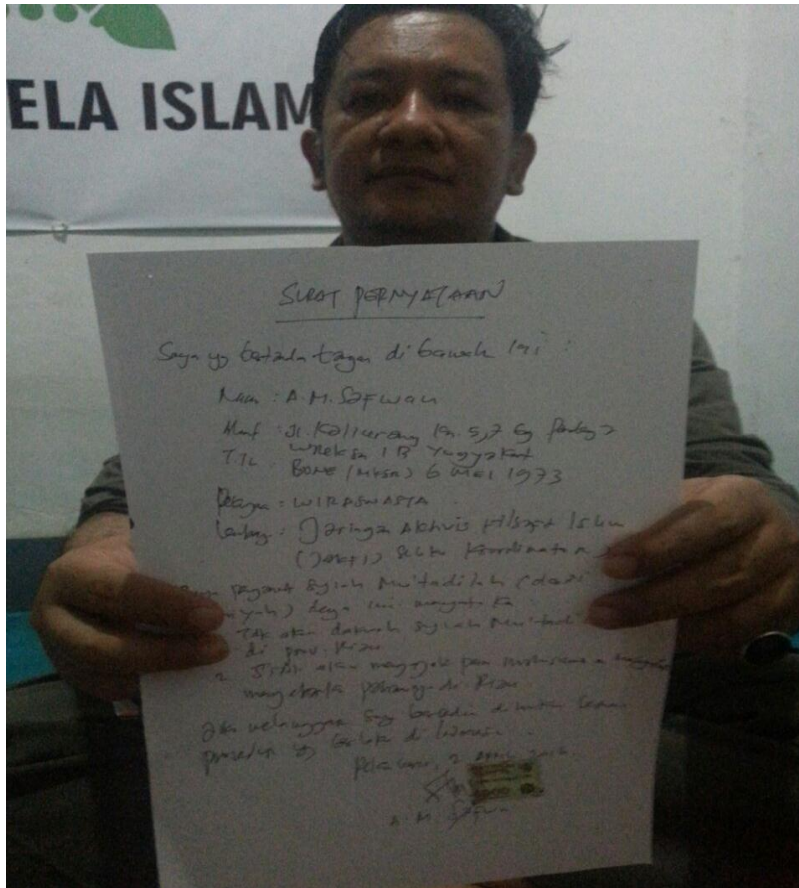 ELA ISLAM
SURAT PERNYATAAN
Saya yg bertanda tangan di bawah ini :
Nama : A.M. Safwan
Alamat : Jl. Kaliurang Km. 5,7 Gg
Wreksa 1B Yogyakarta
T.TL : BONE (MKSR) 6 MEI 1973
Pekerjaan : WIRASWASTA
Lembaga : Jaringan Aktivis Filsafat Islam
(JAKFI) Selaku Koordinator
penganut Syiah Mu'tadilah
dengan ini menyatakan
Tak akan dakwah Syiah
di prov. Riau
2. Tidak akan mengajak
di Riau
Jika melanggar saya bersedia di
prosedur yg berlaku di
Pekanbaru, 2 April
A. M. Safwan